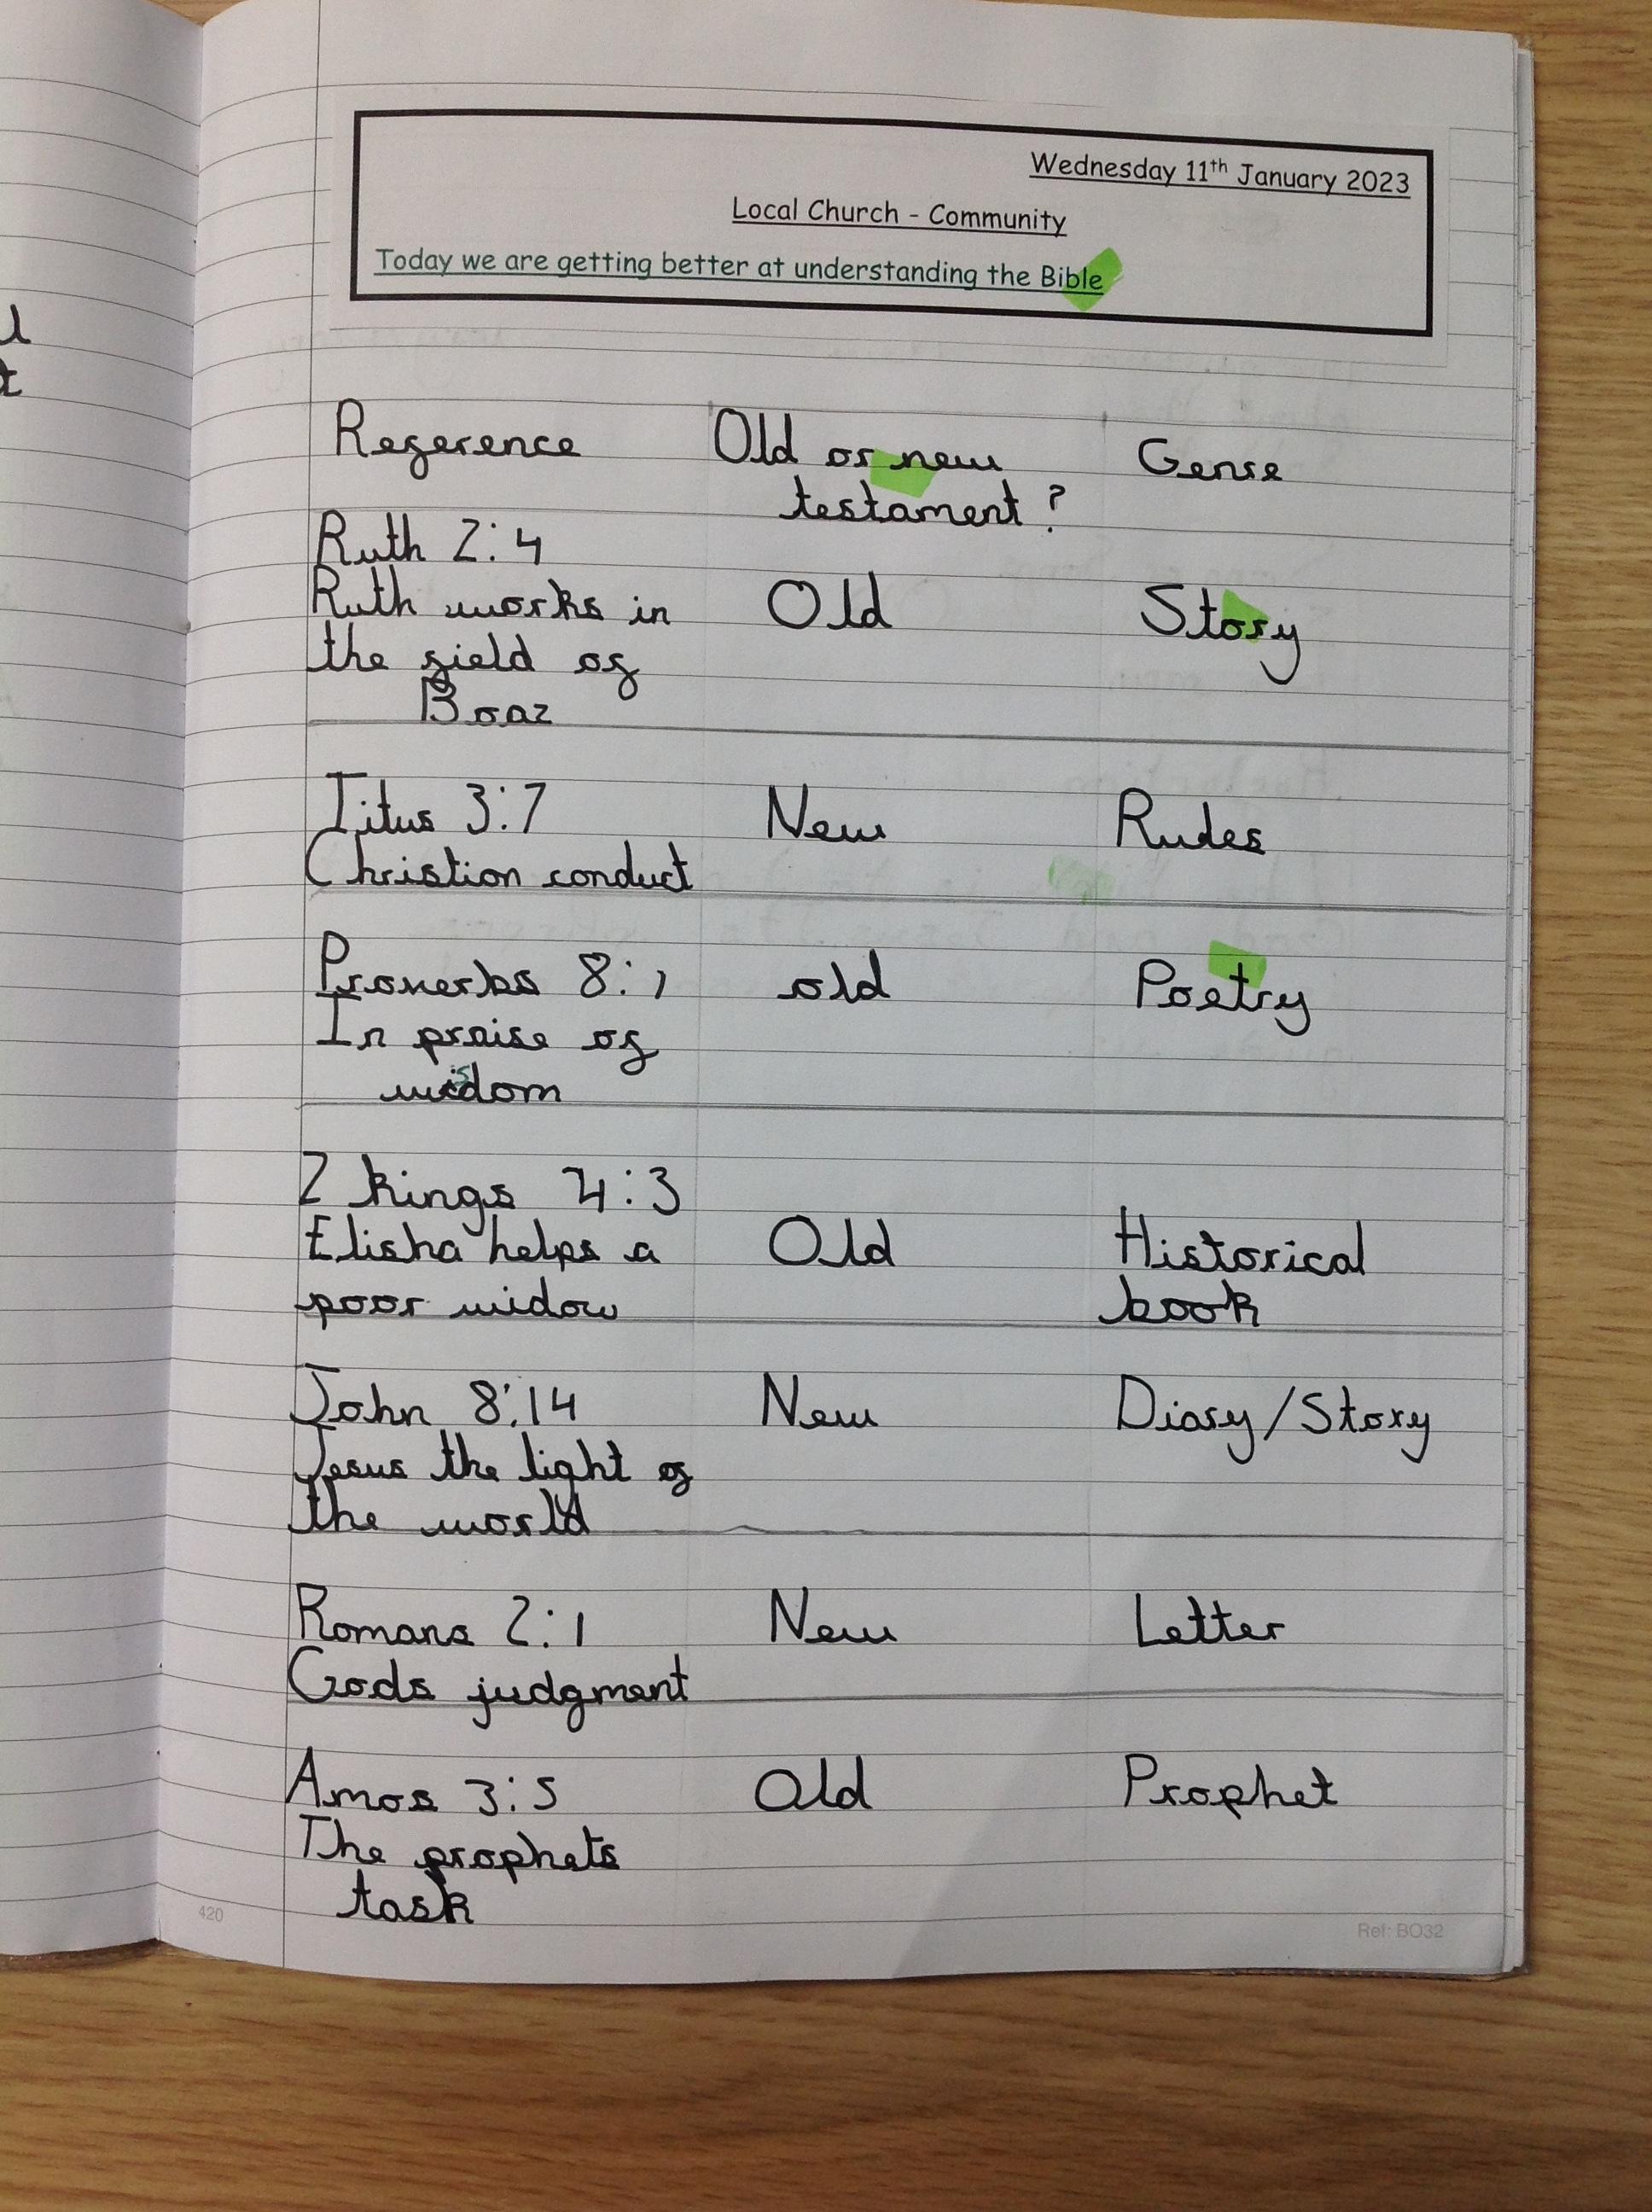 Wednesday 11th January 2023
Local Church - Community
Today we are getting better at understanding the Bible
Reference Old or new Genre
testament?
Ruth 2:4
Ruth works in Old Story
the field of
Boaz
Titus 3:7 New Rudes
Christion conduct
Proverbs 8:1 old Poetry
In praise of
wisdom
2 kings 4:3
Elisha helps a Old Historical
poor widow book
John 8:14 New Diary/Story
Jesus the light of
the world
Romans 2:1 New Letter
Gods judgment
Amos 3:5 Old Prophet
The prophets
task
420
Ref: BO32